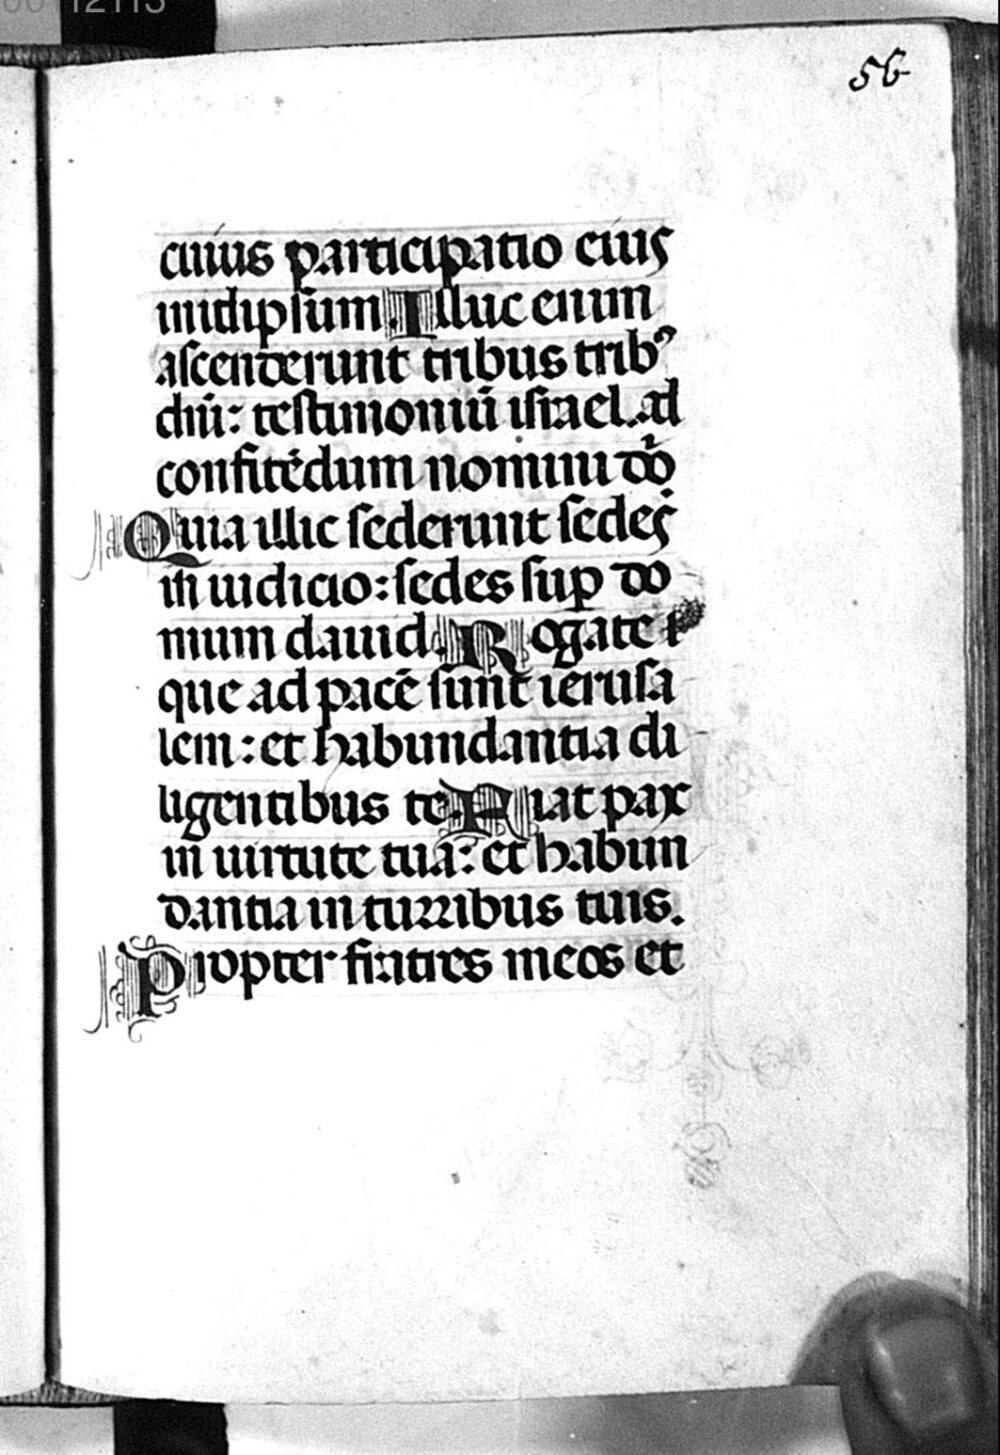 56
cuius participatio eius
inidipsum. Illuc enim
ascenderunt tribus tribꝰ
dn̄i: testimoniū israel. ad
confitēdum nomini dō
Quia illic sederunt sedes
in iudicio: sedes sup do
mum dauid. Rogate
que ad pacē sunt ierusa
lem: et habundantia di
ligentibus te. Fiat pax
in uirtute tua: et habun
dantia in turribus tuis.
Propter fratres meos et